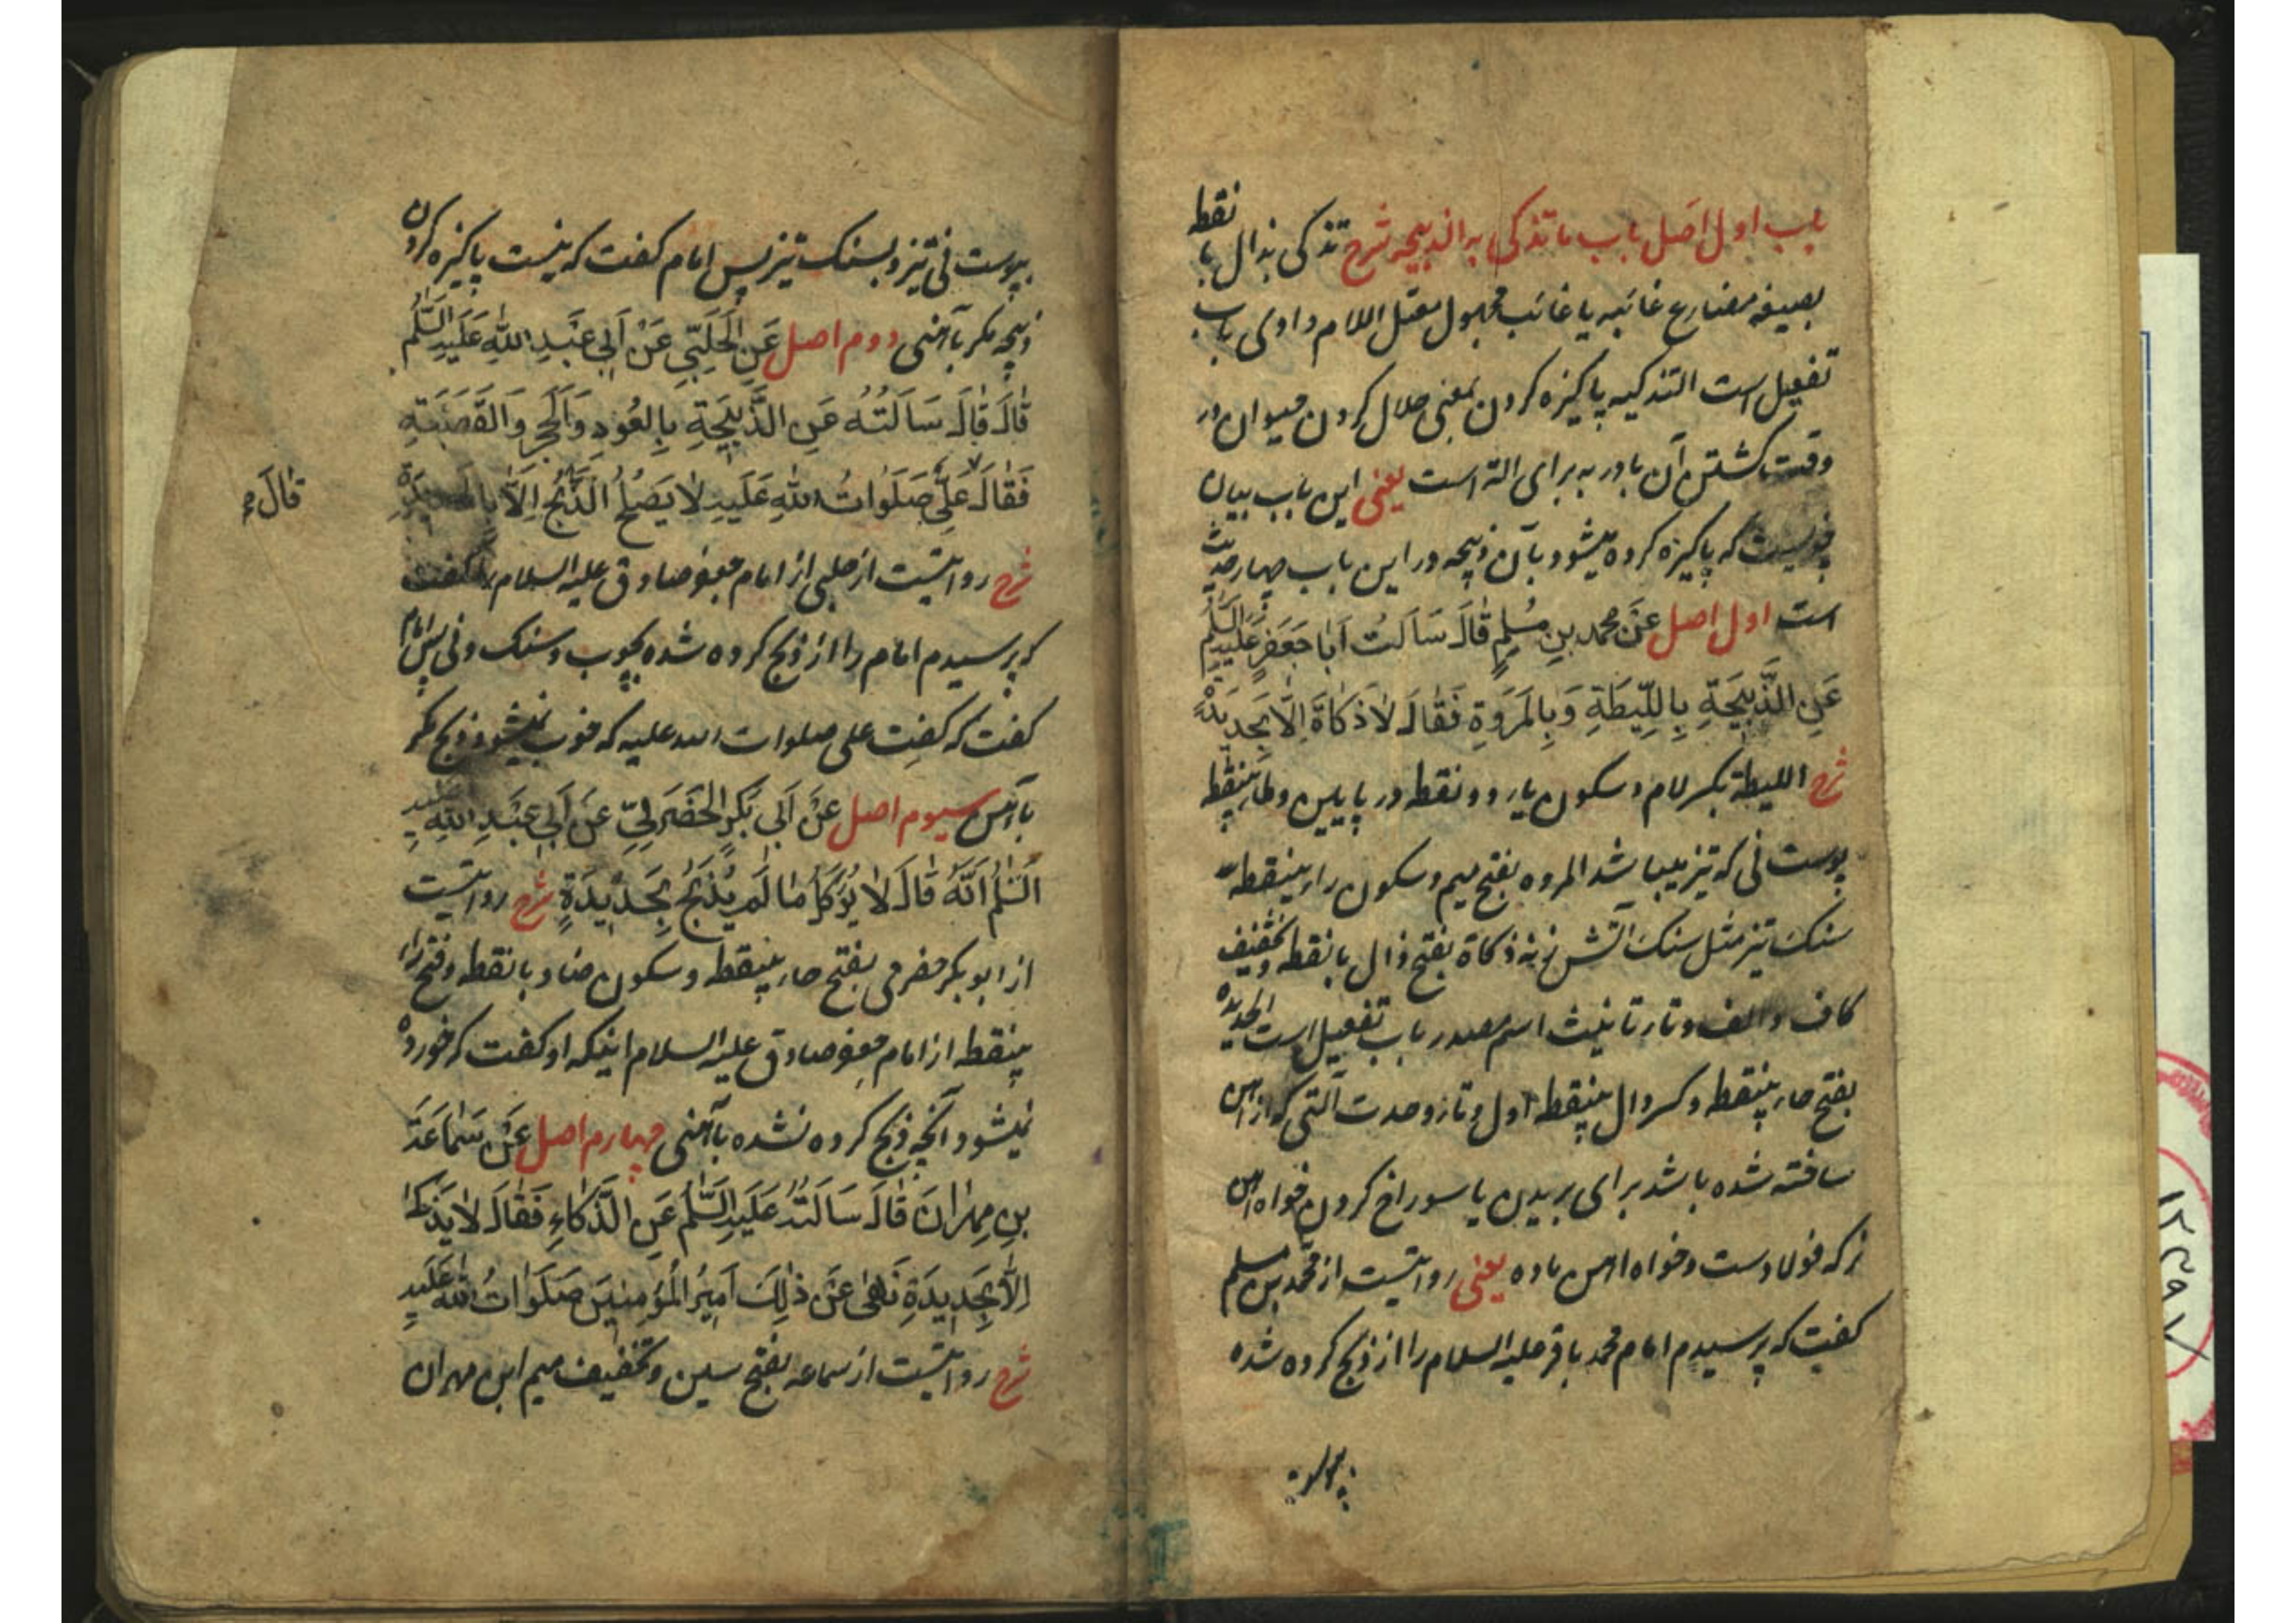 باب اول اصل باب ما تذکی به الذبیحه شرح تذکی بذال با نقطه
بصیغه مضارع غائبه یا غائب مجهول معتل اللام واوی باب
تفعیل است التذکیه پاکیزه کردن بمعنی حلال کردن حیوان در
وقت کشتن آن با در به برای آلة است یعنی این باب بیان
چیزیست که پاکیزه کرده میشود بآن ذبیحه در این باب چهار حدیث
است اول اصل عَنْ محمد بنِ مُسْلِمٍ قَالَ سَأَلْتُ اَبَا جَعْفَرٍ عَلَيْهِ السَّلٰمُ
عَنِ الذَّبِيحَةِ بِاللِّيطَةِ وَبِالْمَرْوَةِ فَقَالَ لَا ذَكَاةَ اِلَّا بِحَدِيدَةٍ
شرح اللیطة بکسر لام و سکون یاء دو نقطه در پایین و طاء بینقطه
پوست نی که تیز میباشد المروه بفتح میم و سکون راء بینقطه
سنک تیز مثل سنک آتش زنه ذکاة بفتح ذال با نقطه و تخفیف
کاف و الف و تاء تانیث اسم مصدر باب تفعیل است الحدیده
بفتح حاء بینقطه و کسر دال بینقطه اول و تاء وحدت آلتی که از آهن
ساخته شده باشد برای بریدن یا سوراخ کردن خواه آهن
نر که فولادست و خواه آهن ماده یعنی روایتست از محمد بن مسلم
کفت که پرسیدم امام محمد باقر علیه السلام را از ذبح کرده شده
بپوست نی تیز و بسنک تیز پس امام کفت که نیست پاکیزه کردن
ذبیحه مکر بآهنی دوم اصل عَنِ الْحَلَبِيِّ عَنْ اَبِي عَبْدِ اللهِ عَلَيْهِ السَّلٰمُ
قَالَ قَالَ سَأَلْتُهُ عَنِ الذَّبِيحَةِ بِالْعُودِ وَالْحَجَرِ وَالْقَصَبَةِ
فَقَالَ عَلِيٌّ صَلَوَاتُ اللهِ عَلَيْهِ لَا يَصْلُحُ الذَّبْحُ اِلَّا بِالْحَدِيدَةِ
قَالَ
شرح روایتست از حلبی از امام جعفر صادق علیه السلام کفت
که پرسیدم امام را از ذبح کرده شده بچوب و سنک و نی پس امام
کفت که کفت علی صلوات الله علیه که خوب نمیشود ذبح مکر
بآهن سیوم اصل عَنْ اَبِي بَكْرٍ الْحَضْرَمِيِّ عَنْ اَبِي عَبْدِ اللهِ عَلَيْهِ
السَّلٰمُ اَنَّهُ قَالَ لَا يُؤْكَلُ مَا لَمْ يُذْبَحْ بِحَدِيدَةٍ شرح روایتست
از ابو بکر حضرمی بفتح حاء بینقطه و سکون ضاد با نقطه و فتح راء
بینقطه از امام جعفر صادق علیه السلام اینکه او کفت که خورده
نمیشود آنچه ذبح کرده نشده بآهنی چهارم اصل عَنْ سَمَاعَةَ
بنِ مِهْرَانَ قَالَ سَأَلْتُهُ عَلَيْهِ السَّلٰمُ عَنِ الذَّكَاةِ فَقَالَ لَا يُذَكَّ
اِلَّا بِحَدِيدَةٍ نَهَى عَنْ ذٰلِكَ اَمِيرُ الْمُؤْمِنِينَ صَلَوَاتُ اللهِ عَلَيْهِ
شرح روایتست از سماعه بفتح سین و تخفیف میم ابن مهران